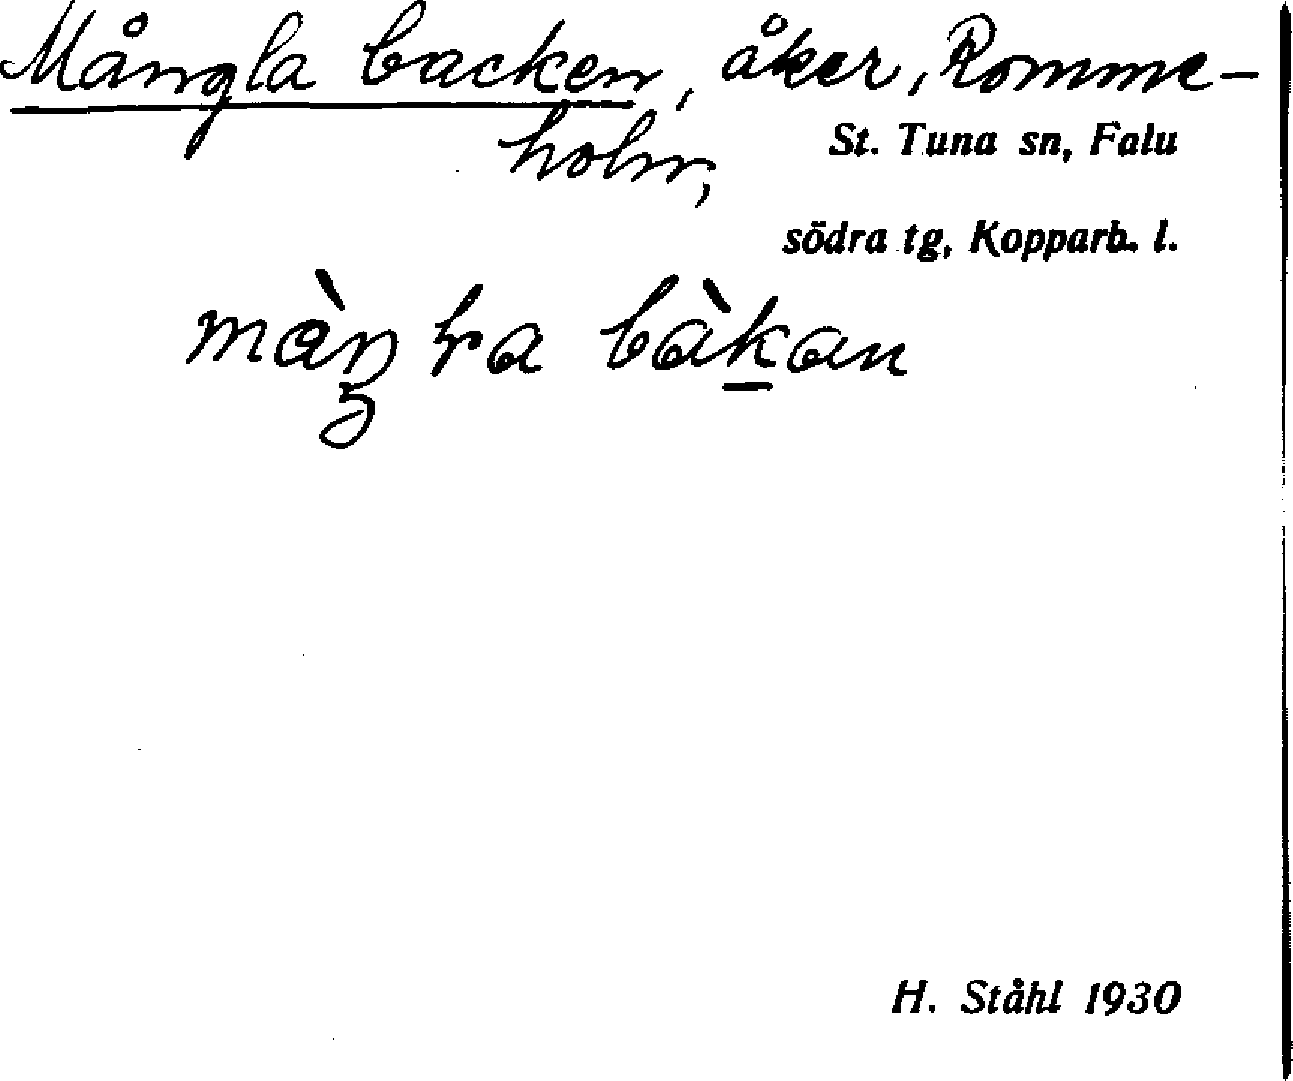 Mångla backen, åker, Romme-
holm,
St. Tuna sn, Falu
södra tg, Kopparb. l.
bàkan
H. Ståhl 1930